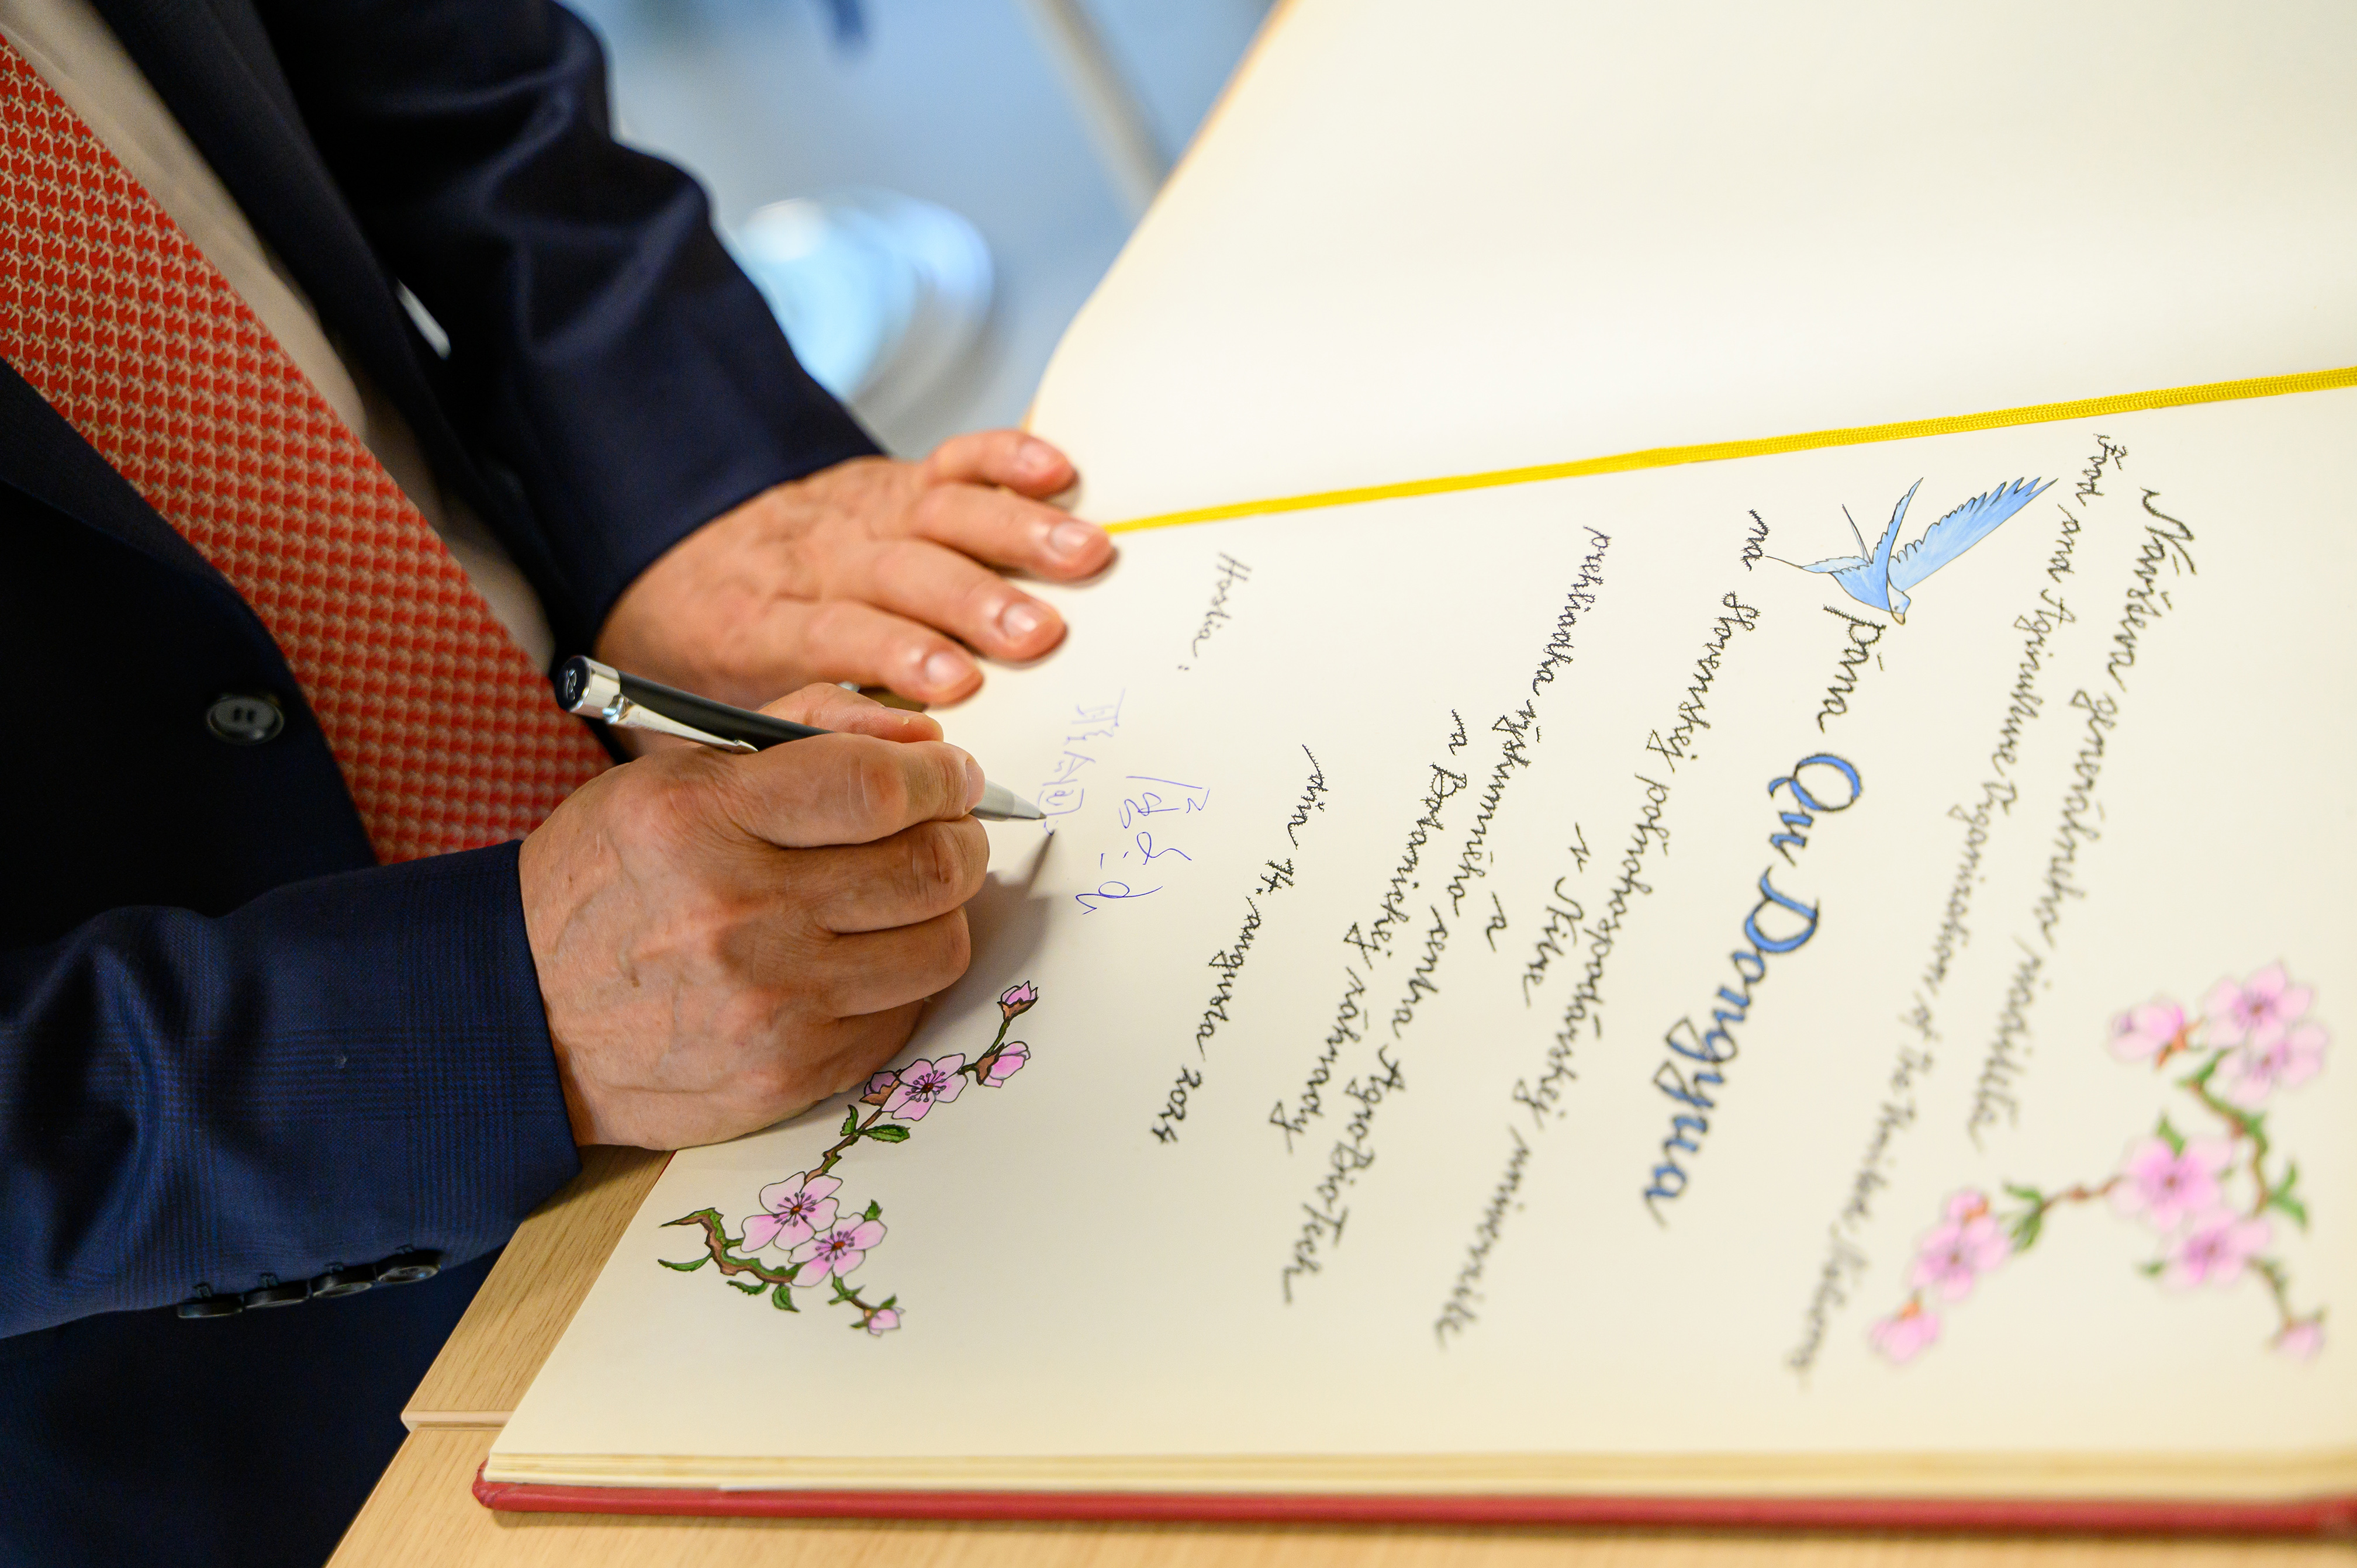 Návšteva generálneho riaditeľa
Food and Agriculture Organization of the United Nations
pána Qu Dongyua
na Slovenskej poľnohospodárskej univerzite
v Nitre
prehliadka výskumného centra AgroBioTech
a Botanickej záhrady
dňa 14. augusta 2024
Hostia: